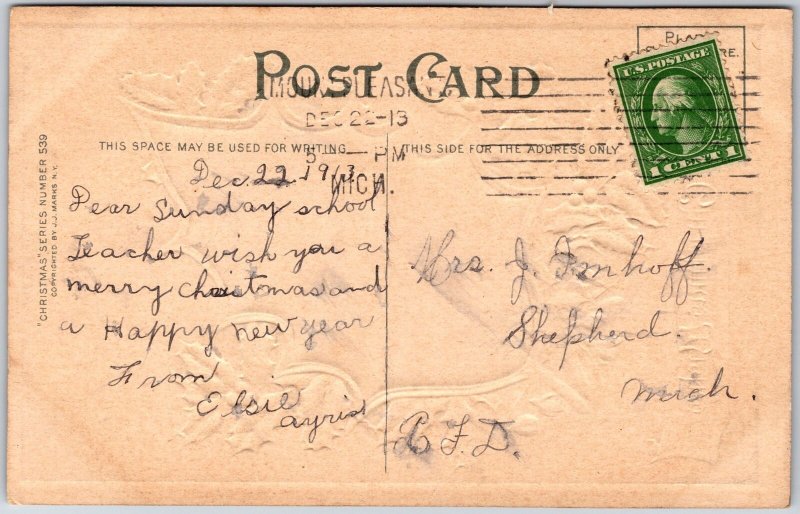 POST CARD
MOUNT PLEASANT
DEC 22-13
5 — PM
MICH.
THIS SPACE MAY BE USED FOR WRITING
THIS SIDE FOR THE ADDRESS ONLY
"CHRISTMAS" SERIES NUMBER 539
COPYRIGHTED BY J.J. MARKS N.Y.
U.S. POSTAGE
1 CENT 1
Dec. 22 1913
Dear Sunday school
Teacher wish you a
merry Christmas and
a Happy new year
From
Elsie
ayris
Mrs. J. Imhoff.
Shepherd.
Mich.
R F. D.